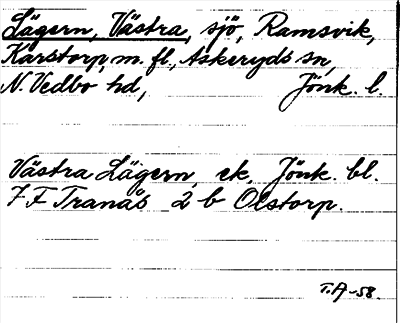 Lägern, Västra, sjö, Ramsvik,
Karstorp, m. fl., Askeryds sn,
N. Vedbo hd, Jönk. l.
Västra Lägern, ek. Jönk. bl.
7 F Tranås 2 b Olstorp.
T.A-58.